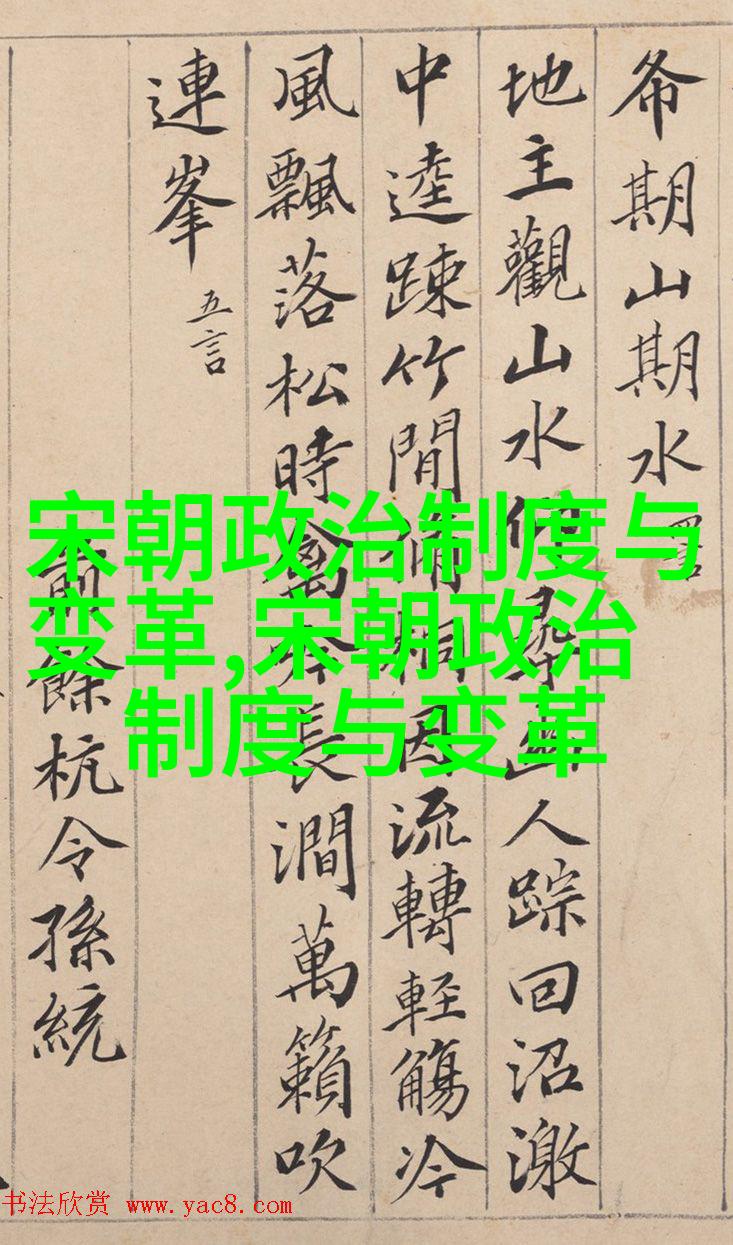 希期山期水
地主觀山水仰尋幽人踪回沼激
中逵踈竹間脩桐因流轉輕觴冷
風飄落松時禽吟長澗萬籟吹
連峯 五言
前餘杭令孫統
宋朝政治制度与
变革,宋朝政治
制度与变革
书法欣赏 www.yac8.com